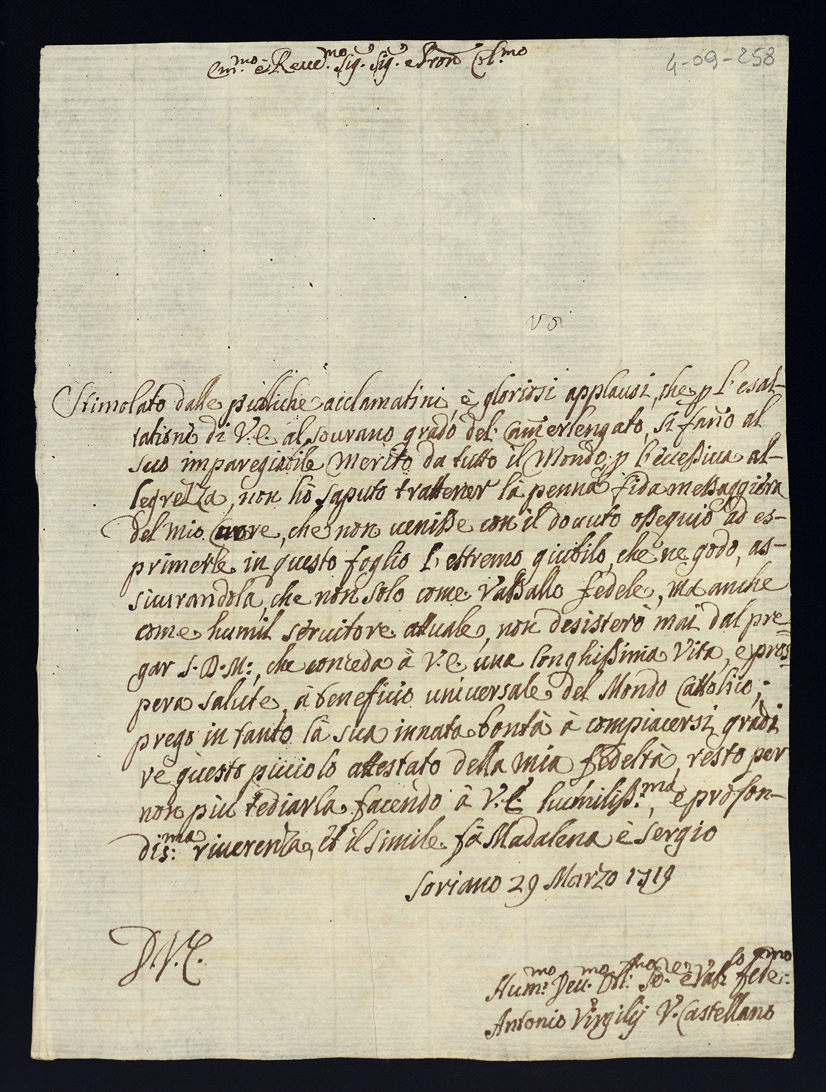 Em.mo e Reue.mo Sig.r Sig.r e Pron Col.mo
4-09-258
Stimolato dalle publiche acclamationi, è gloriosi applausi, che p l'esal-
tatione di V.E. al sourano grado del Camerlengato, si fano al
suo imparegiabile Merito da tutto il Mondo, p l'eccessiua al-
legrezza, non hò saputo trattener la penna fida messaggiera
del mio Cuore, che non uenisse con il douuto ossequio ad es-
primerle in questo foglio l'estremo giubilo, che ne godo, as-
siurandola, che non solo come Vassallo fedele, ma anche
come humil seruitore attuale, non desisterò mai dal pre
gar S.D.M:, che conceda à V.E. una longhissima Vita, e pros-
pera salute, à beneficio uniuersale del Mondo Cattolico;
prego in tanto la sua innata bontà à compiacersi gradi
re questo picciolo attestato della mia fedeltà, resto per
non piu tediarla facendo à V.E. humiliss.ma, e profon-
dis:ma riuerenza, et il simile fà Madalena è Sergio
Soriano 29 Marzo 1719
D.V.E.
Hum.mo Deu.mo Se.re è Vas.lo fede.mo
Antonio Virgilij V. Castellano